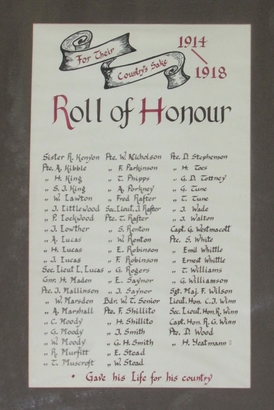 For Their
Country's Sake
1914
1918
Roll of Honour
Sister R. Kenyon
Pte. A. Kibble
„ H. King
„ S. J. King
„ W. Lawton
„ J. Littlewood
„ P. Lockwood
„ J. Lowther
„ A. Lucas
„ H. Lucas
„ J. Lucas
Sec. Lieut L. Lucas
Gnr. H. Maden
Pte. J. Mallinson
„ W. Marsden
„ A. Marshall
„ C. Moody
„ G. Moody
„ W. Moody
„ R. Murfitt
„ T. Muscroft
Pte. W. Nicholson
„ F. Parkinson
„ T. Phipps
„ A. Porkney
„ Fred Rafter
Sec. Lieut. J. Rafter
Pte. T. Rafter
„ S. Renton
„ W. Renton
„ E. Robinson
„ F. Robinson
„ G. Rogers
„ E. Saynor
„ J. Saynor
Bdr. W. T. Senior
Pte. F. Shillito
„ H. Shillito
„ J. Smith
„ G. H. Smith
„ E. Stead
„ W. Stead
Pte. D. Stephenson
„ H. Toes
„ G. D. Tottney
„ G. Tune
„ T. Tune
„ J. Wade
„ J. Walton
Capt. G. Westmacott
Pte. S. White
„ Emil Whittle
„ Ernest Whittle
„ T. Williams
„ G. Williamson
Sgt. Maj. F. Wilson
Lieut. Hon. C. J. Winn
Sec. Lieut. Hon. R. Winn
Capt. Hon. R. G. Winn
Pte. D. Wood
„ H. Yeatmann
• Gave his Life for his country